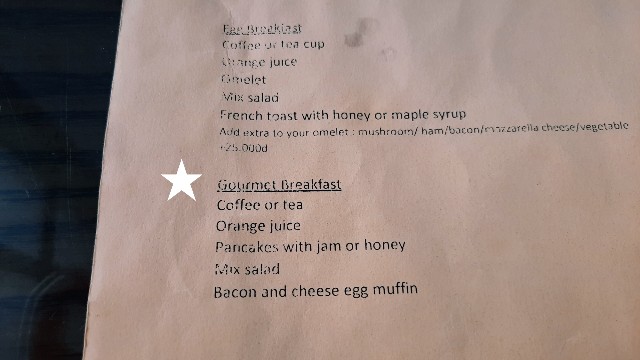 Egg Breakfast
Coffee or tea cup
Orange juice
Omelet
Mix salad
French toast with honey or maple syrup
Add extra to your omelet : mushroom/ ham/bacon/mozzarella cheese/vegetable
+25.000d
Gourmet Breakfast
Coffee or tea
Orange juice
Pancakes with jam or honey
Mix salad
Bacon and cheese egg muffin